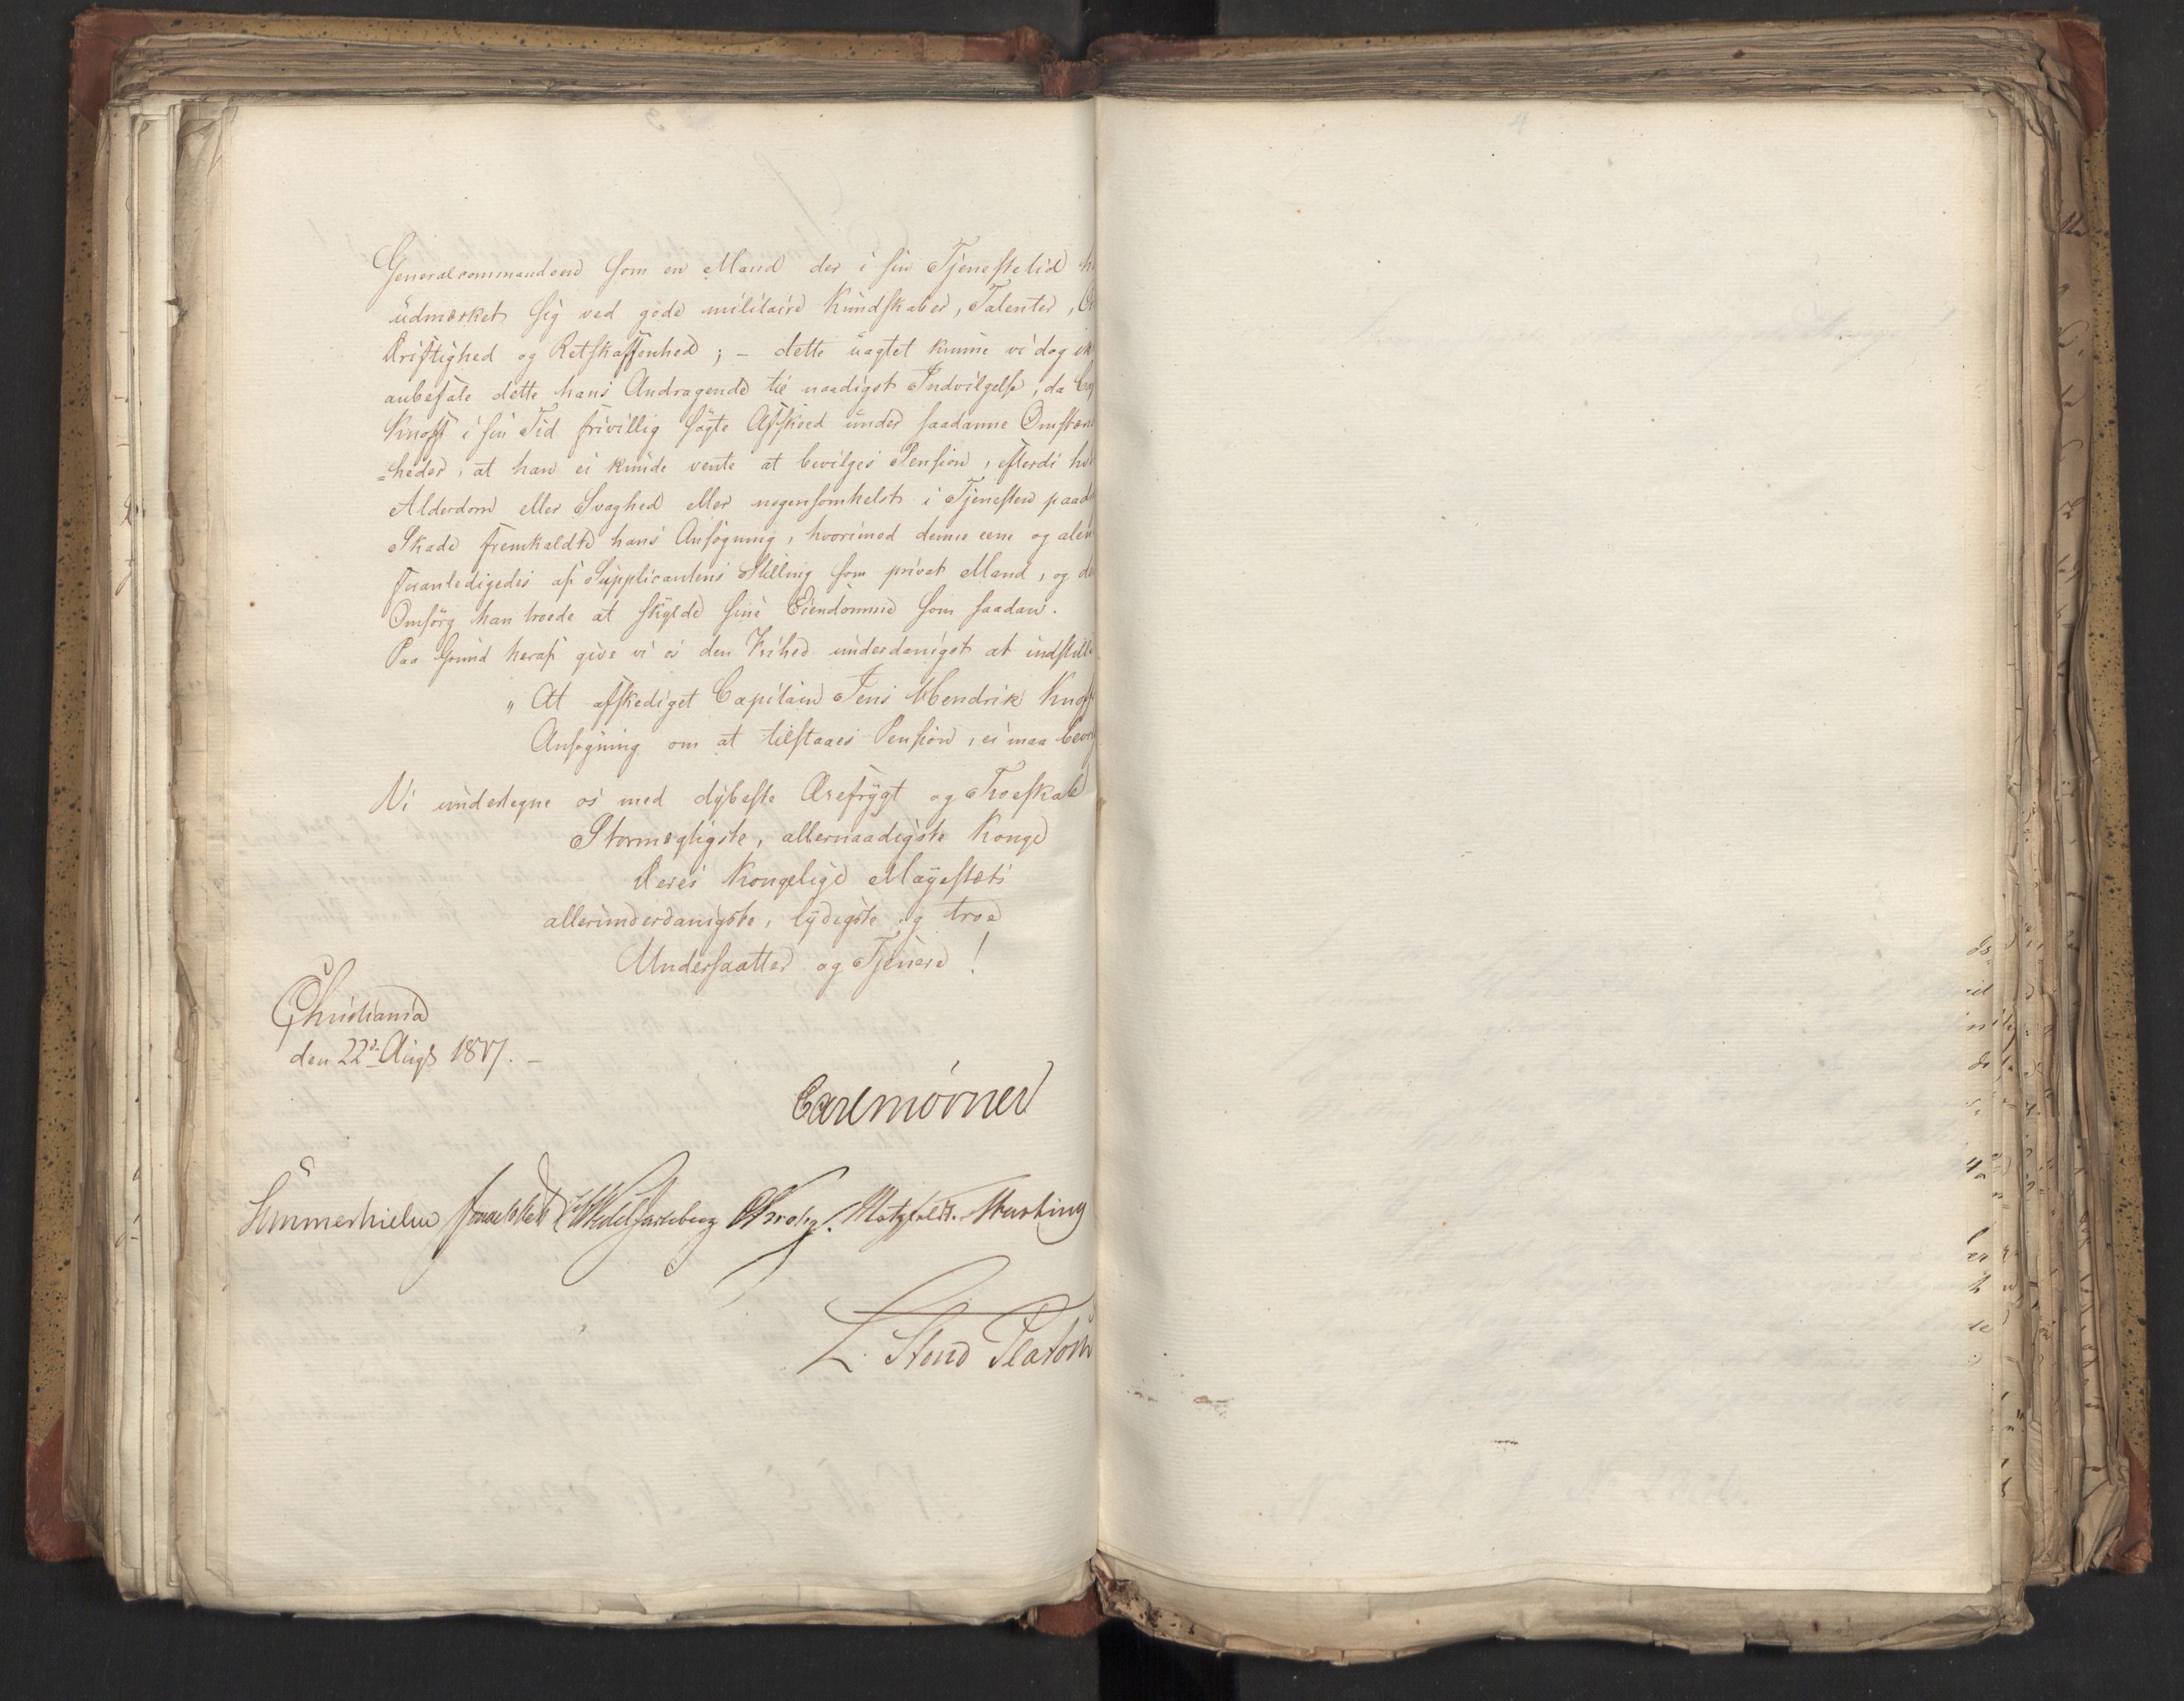 Generalcommandoen som en Mand der i sin Tjenestetid
udmærket sig ved gode militaire Kundskaber, Talenter,
Driftighed og Retskaffenhed; - dette uagtet kunne vi dog
anbefale dette hans Andragende til naadigst Indvilgelse, da
Knoff i sin Tid frivillig søgte Afskeed under saadanne Omstæn
=heder, at han ei kunde vente at bevilges Pension, efterdi
Alderdom eller Svaghed eller nogensomhelst i Tjenesten paad
Skade fremkaldte hans Ansøgning, hvorimod denne eene og alen
foranledigedes af Supplicantens Stilling som privat Mand, og
Omsorg han troede at skylde sine Eiendomme som saadan.
Paa Grund heraf give vi os den Frihed underdanigst at indstille
" At afskediget Capitain Jens Hendrik Knoff
Ansøgning om at tilstaaes Pension, ei maa bev
Vi undertegne os med dybeste Ærefrygt og Troeskab
Stormægtigste, allernaadigste Konge
Deres Kongelige Mayestæts
allerunderdanigste, lydigste og troe
Undersaatter og Tjenere!
Christiania
den 22de Augs 1817. -
Carl Mörner
Sommerhielm Wedel Jarlsberg Krohg. Motzfeldt. Hersleb
L. Stoud Platou